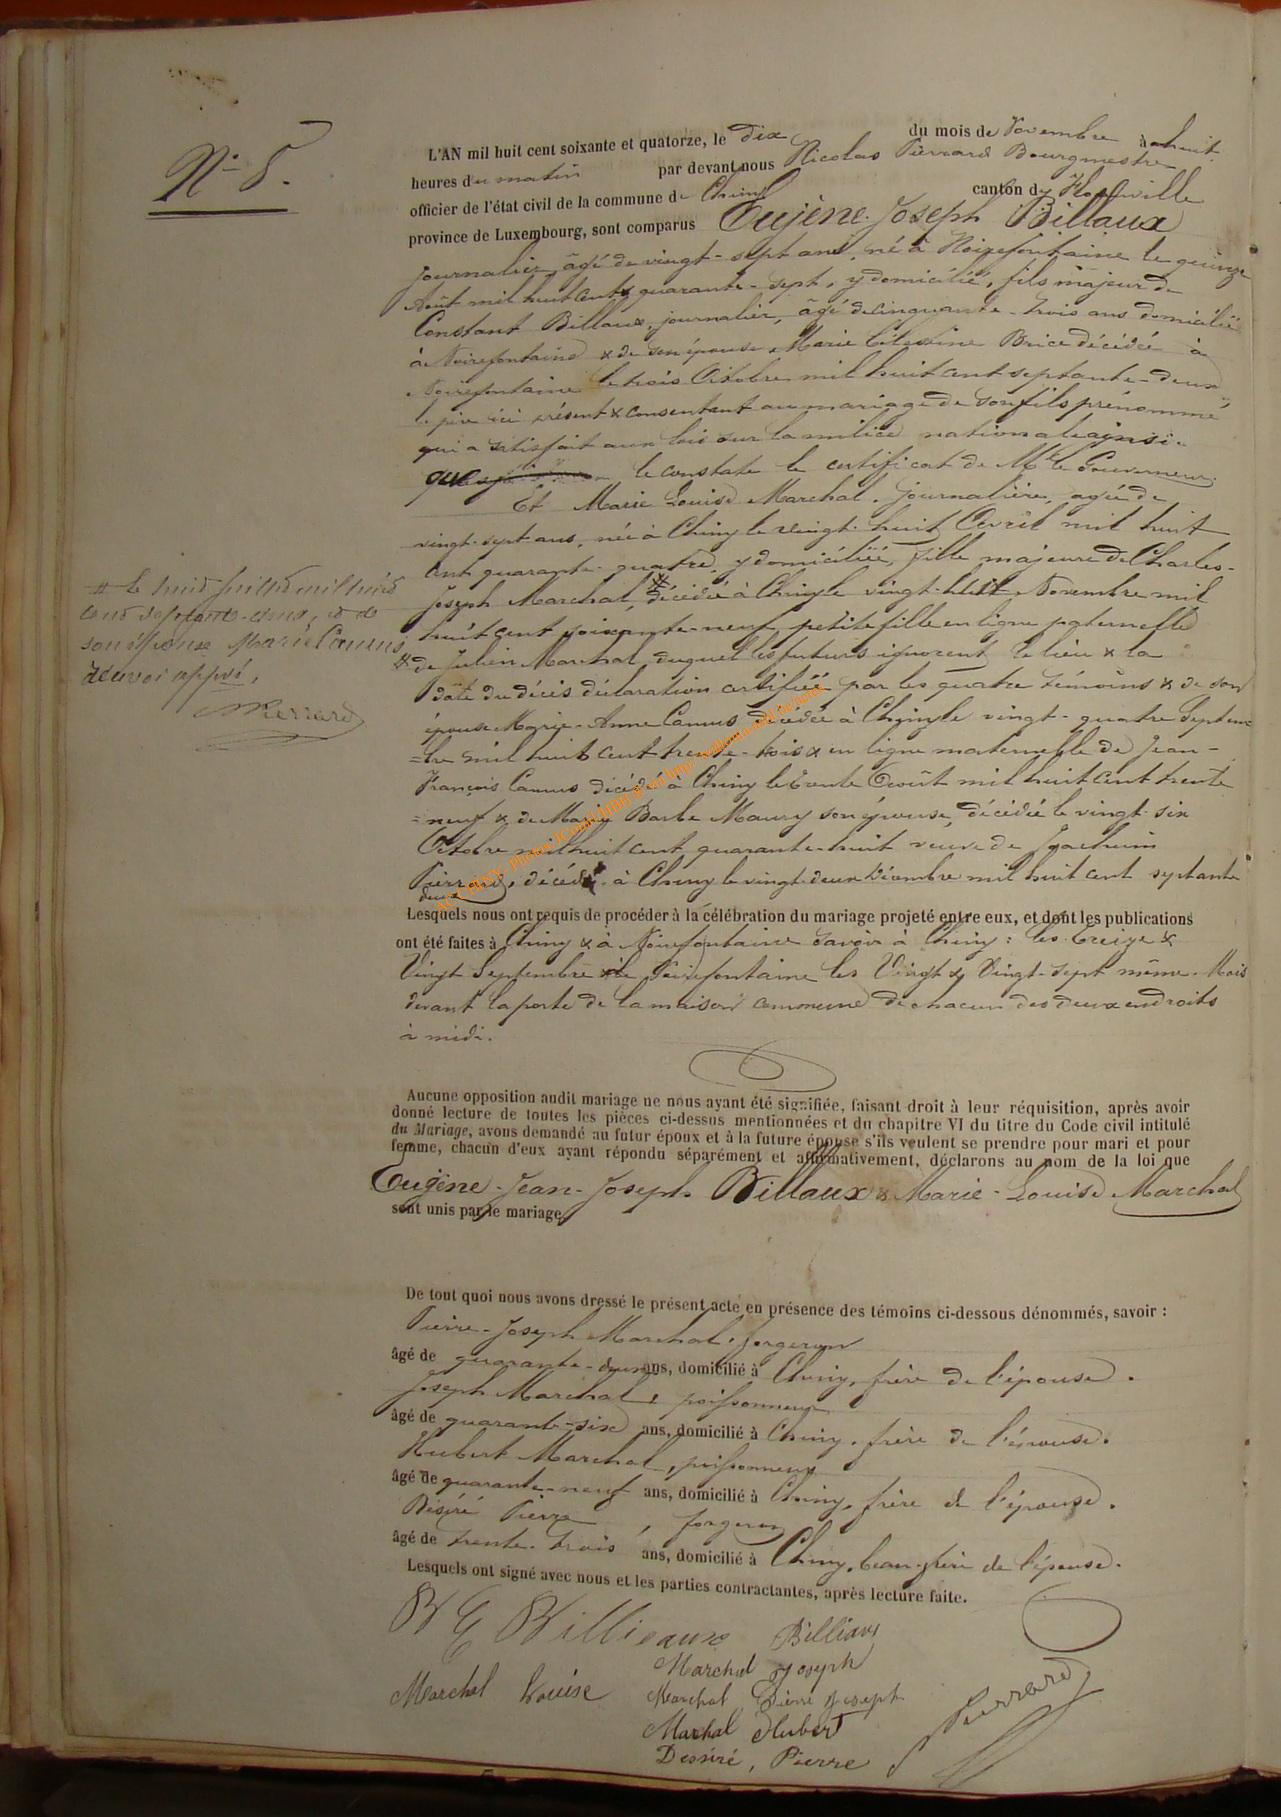 N° 8.
L'AN mil huit cent soixante et quatorze, le dix du mois de Novembre à huit
heures du matin par devant nous Nicolas Pierrard Bourgmestre
officier de l'état civil de la commune de Chiny canton de
province de Luxembourg, sont comparus Eugène-Joseph Billaux
journalier, âgé de vingt-sept ans, né à Noirefontaine le quinze
Août mil huit cent quarante-sept, y domicilié, fils majeur de
Constant Billaux, journalier, âgé de cinquante-trois ans domicilié
à Noirefontaine & de son épouse Marie Célestine Brice décédée à
Noirefontaine le trois Octobre mil huit cent septante-deux
le père ici présent & consentant au mariage de son fils prénommé
qui a satisfait aux lois sur la milice nationale ainsi
que le constate le certificat de Mr le Gouverneur.
Et Marie Louise Marchal, journalière, agée de
vingt-sept ans, née à Chiny le vingt-huit Avril mil huit
cent quarante-quatre, y domiciliée, fille majeure de Charles-
Joseph Marchal, # décédé à Chiny le vingt-huit Novembre mil
huit cent soixante-neuf petite fille en ligne paternelle
# de Julien Marchal, duquel les futurs ignorent le lieu & la
date du décès déclaration certifiée par les quatre témoins & de son
épouse Marie-Anne Camus décédée à Chiny le vingt-quatre Septem
=bre mil huit cent trente-trois & en ligne maternelle de Jean-
François Camus décédé à Chiny le trente Août mil huit cent trente
=neuf & de Marie Barbe Maury son épouse, décédée le vingt-six
Octobre mil huit cent quarante-huit veuve de Joachim
Pierrard, décédé à Chiny le vingt-deux Décembre mil huit cent septante
deux
# le huit juillet mil huit
cent septante-deux, & de
son épouse Marie Camus
Renvoi appvé,
Pierrard
Lesquels nous ont requis de procéder à la célébration du mariage projeté entre eux, et dont les publications
ont été faites à Chiny & à Noirefontaine savoir à Chiny: les Treize &
Vingt Septembre & de Noirefontaine les Vingt & Vingt-sept même Mois
devant la porte de la maison commune de chacun des deux endroits
à midi.
Aucune opposition audit mariage ne nous ayant été signifiée, faisant droit à leur réquisition, après avoir
donné lecture de toutes les pièces ci-dessus mentionnées et du chapitre VI du titre du Code civil intitulé
du Mariage, avons demandé au futur époux et à la future épouse s'ils veulent se prendre pour mari et pour
femme, chacun d'eux ayant répondu séparément et affirmativement, déclarons au nom de la loi que
Eugène-Jean-Joseph Billaux & Marie-Louise Marchal
sont unis par le mariage.
De tout quoi nous avons dressé le présent acte en présence des témoins ci-dessous dénommés, savoir :
Pierre-Joseph Marchal, forgeron
âgé de quarante-deux ans, domicilié à Chiny, frère de l'épouse.
Joseph Marchal, poissonneur
âgé de quarante-six ans, domicilié à Chiny, frère de l'épouse.
Hubert Marchal, poissonneur
âgé de quarante-neuf ans, domicilié à Chiny, frère de l'épouse.
Désiré Pierre, forgeron
âgé de trente-trois ans, domicilié à Chiny, beau-frère de l'épouse.
Lesquels ont signé avec nous et les parties contractantes, après lecture faite.
Billieaux Billiaux
Marchal Joseph
Marchal Louise Marchal Pierre Joseph
Marchal Hubert
Dessiré, Pierre
Pierrard